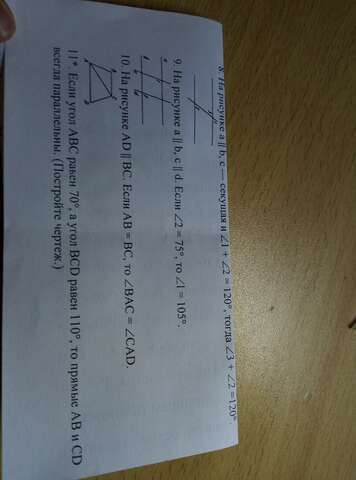 8. На рисунке a || b, c — секущая и ∠1 + ∠2 = 120°, тогда ∠3 + ∠2 =120°
9. На рисунке a || b, c || d. Если ∠2 = 75°, то ∠1 = 105°.
10. На рисунке AD || BC. Если AB = BC, то ∠BAC = ∠CAD.
11*. Если угол ABC равен 70°, а угол BCD равен 110°, то прямые AB и CD
всегда параллельны. (Постройте чертеж.)